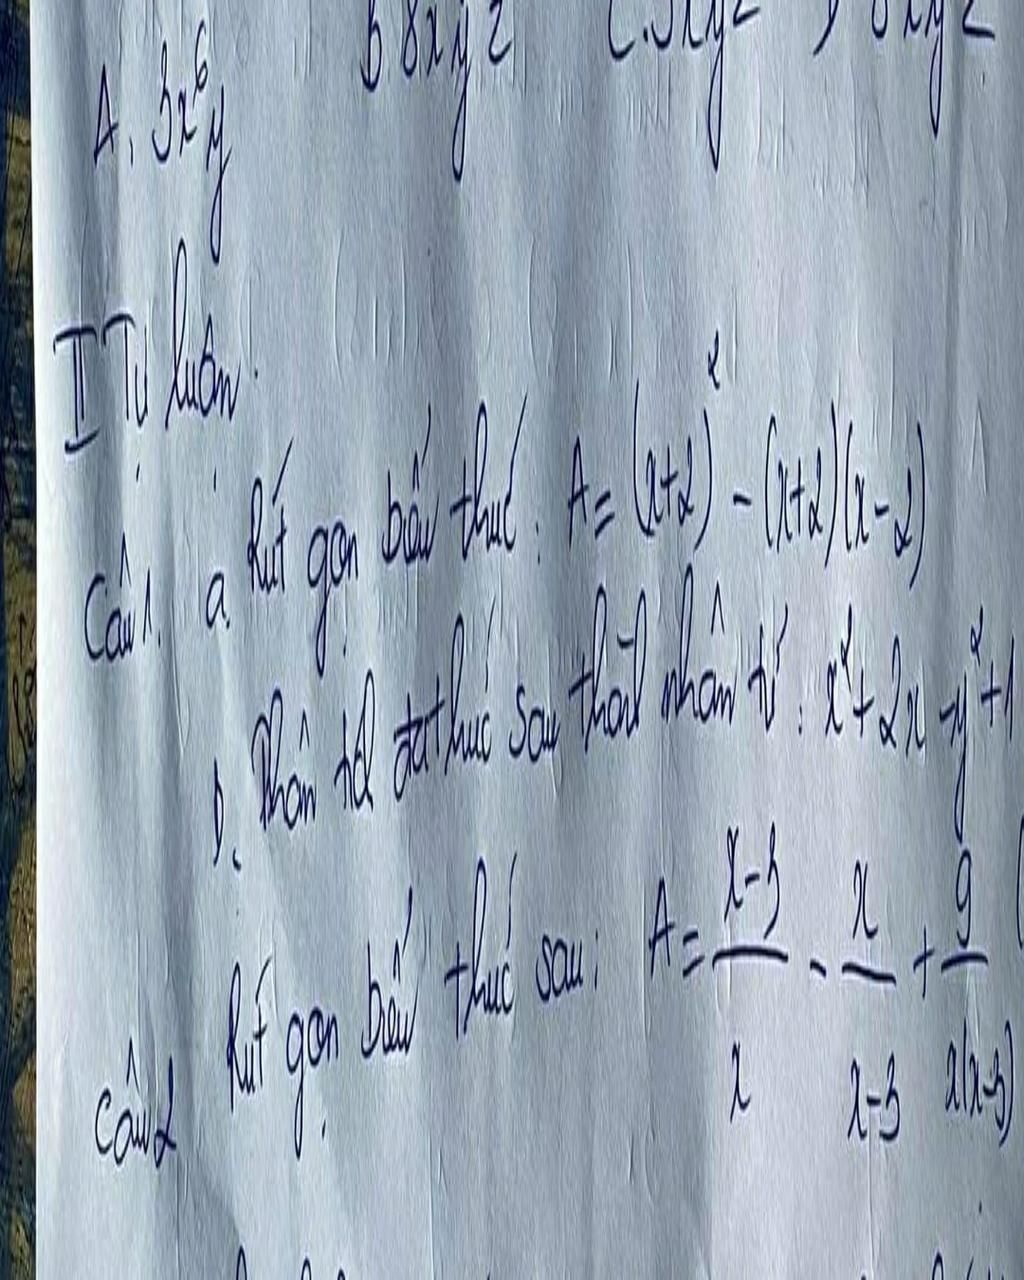 A. 3x⁶y
II Tự luận.
Câu 1. a. Rút gọn biểu thức: A = (x+2)² - (x+2)(x-2)
b. Phân tích đa thức sau thành nhân tử: x² + 2x - y² + 1
Câu 2 Rút gọn biểu thức sau: A = \frac{x-3}{x} - \frac{x}{x-3} + \frac{9}{x(x-3)}